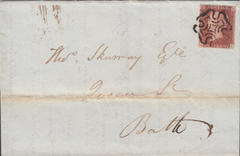 Thos. Skurray Esqe
Queen St
Bath